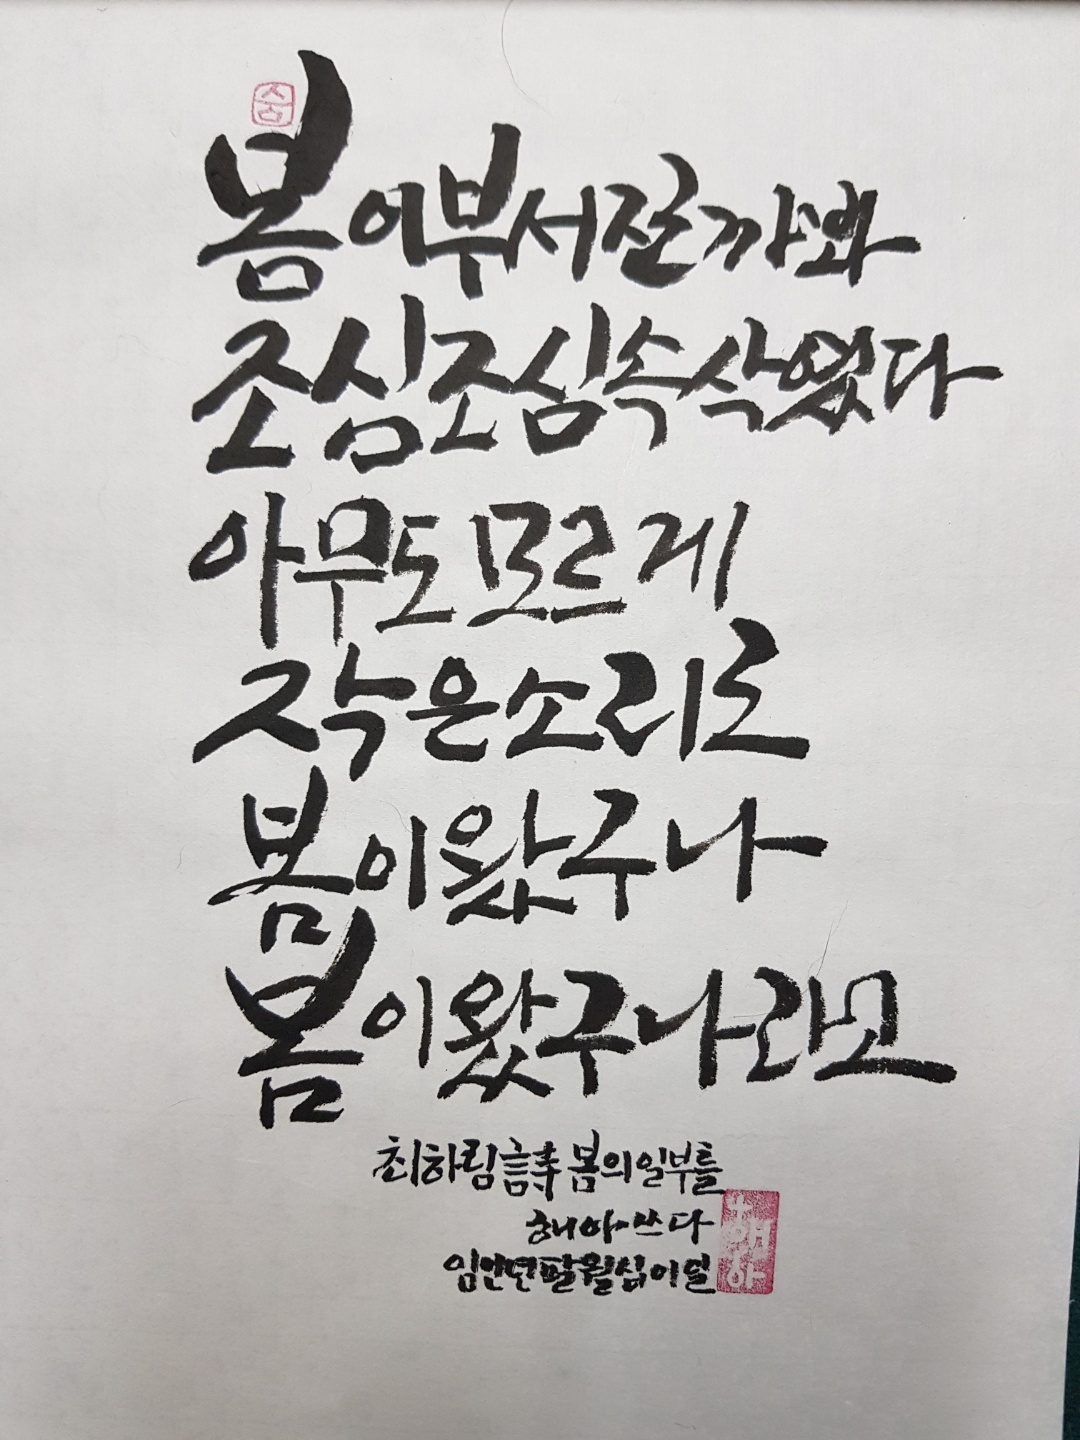 숨
봄이부서질까봐
조심조심속삭였다
아무도모르게
작은소리로
봄이왔구나
봄이왔구나라고
최하림詩봄의일부를
해아쓰다
임인년팔월십이일
해아